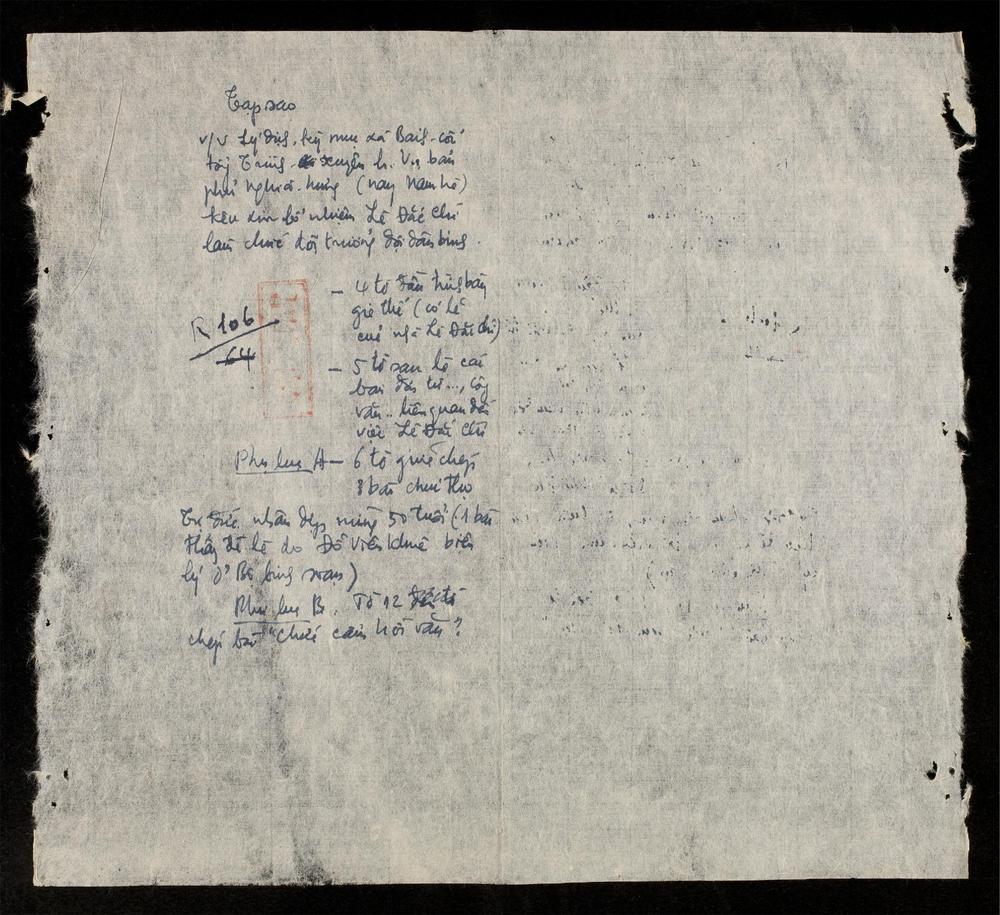 Tạp sao
v/v Lý dịch, kỳ mục xã Bách-cốc
tổng Trình xuyên h. Vụ bản
phủ Nghĩa-hưng (nay Nam hà)
kêu xin bổ nhiệm Lê Đắc Chí
làm chức đội trưởng đội dân binh.
- 4 tờ đầu trùng bày
gia thế (có lẽ
của nhà Lê Đắc Chí)
R 106
64
- 5 tờ sau là các
bài đơn từ..., công
văn.. liên quan đến
việc Lê Đắc Chí
Phụ lục A - 6 tờ giữa chép
8 bản chúc thọ
Tự đức nhân dịp mừng 50 tuổi (1 bản
thấy đề là do Đỗ Viên Khuê biện
lý ở Bộ binh soạn)
Phụ lục B. Tờ 12
chép bài "Chức cẩm hồi văn"